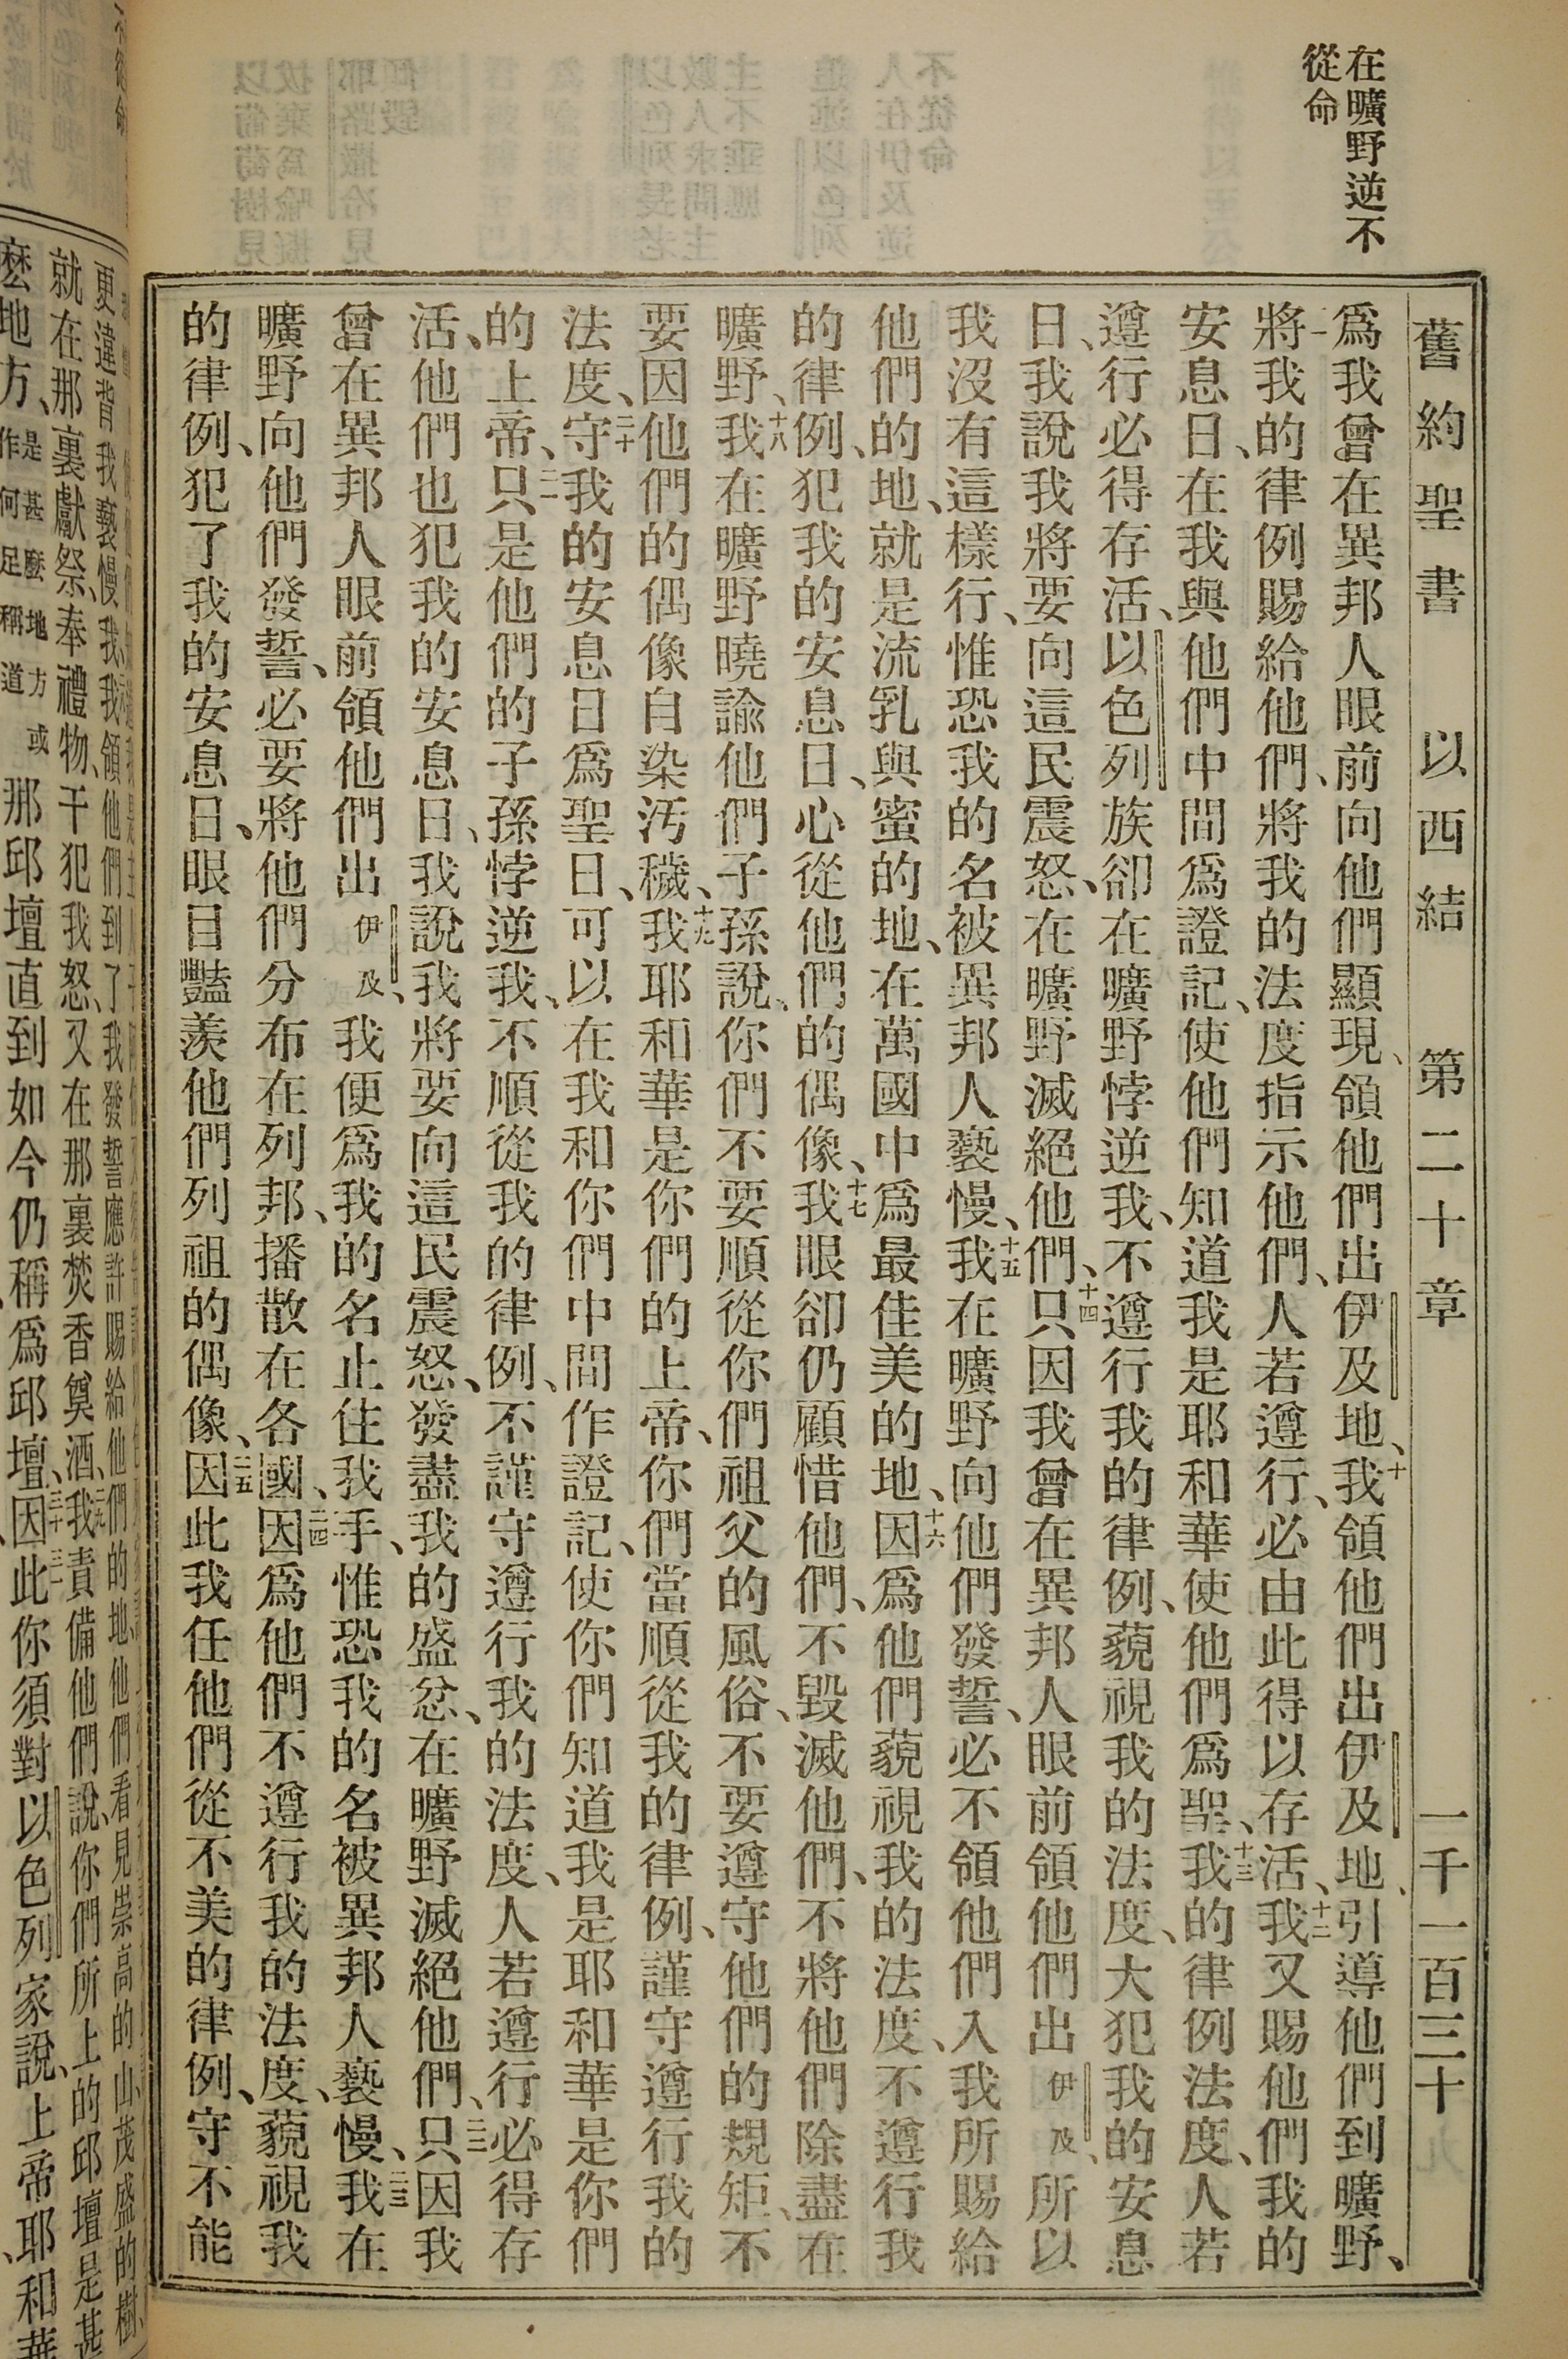 在曠野逆不
從命
舊約聖書 以西結 第二十章 一千一百三十
爲我曾在異邦人眼前向他們顯現、領他們出伊及地、十我領他們出伊及地、引導他們到曠野、
一將我的律例賜給他們、將我的法度指示他們、人若遵行、必由此得以存活、十二我又賜他們我的
安息日、在我與他們中間爲證記、使他們知道我是耶和華使他們爲聖、十三我的律例法度、人若
遵行必得存活、以色列族卻在曠野悖逆我、不遵行我的律例、藐視我的法度、大犯我的安息
日、我說我將要向這民震怒、在曠野滅絕他們、十四只因我曾在異邦人眼前領他們出伊及、所以
我沒有這樣行、惟恐我的名被異邦人褻慢、十五我在曠野向他們發誓、必不領他們入我所賜給
他們的地、就是流乳與蜜的地、在萬國中爲最佳美的地、十六因爲他們藐視我的法度、不遵行我
的律例、犯我的安息日、心從他們的偶像、十七我眼卻仍顧惜他們、不毀滅他們、不將他們除盡在
曠野、十八我在曠野曉諭他們子孫說、你們不要順從你們祖父的風俗、不要遵守他們的規矩、不
要因他們的偶像自染汚穢、十九我耶和華是你們的上帝、你們當順從我的律例、謹守遵行我的
法度、二十守我的安息日爲聖日、可以在我和你們中間作證記、使你們知道我是耶和華是你們
的上帝、二一只是他們的子孫悖逆我、不順從我的律例、不謹守遵行我的法度、人若遵行必得存
活、他們也犯我的安息日、我說我將要向這民震怒、發盡我的盛忿、在曠野滅絕他們、二二只因我
曾在異邦人眼前領他們出伊及、我便爲我的名止住我手、惟恐我的名被異邦人褻慢、二三我在
曠野向他們發誓、必要將他們分布在列邦、播散在各國、二四因爲他們不遵行我的法度、藐視我
的律例、犯了我的安息日、眼目豔羨他們列祖的偶像、二五因此我任他們從不美的律例、守不能
更違背我褻慢我、我領他們到了我發誓應許賜給他們的地、他們看見崇高的山茂盛的樹、
就在那裏獻祭、奉禮物、干犯我怒、又在那裏焚香奠酒、二九我責備他們說、你們所上的邱壇是甚
麽地方、是甚麽地方或作何足稱道那邱壇直到如今仍稱爲邱壇、三十因此你須對以色列家說、上帝耶和華